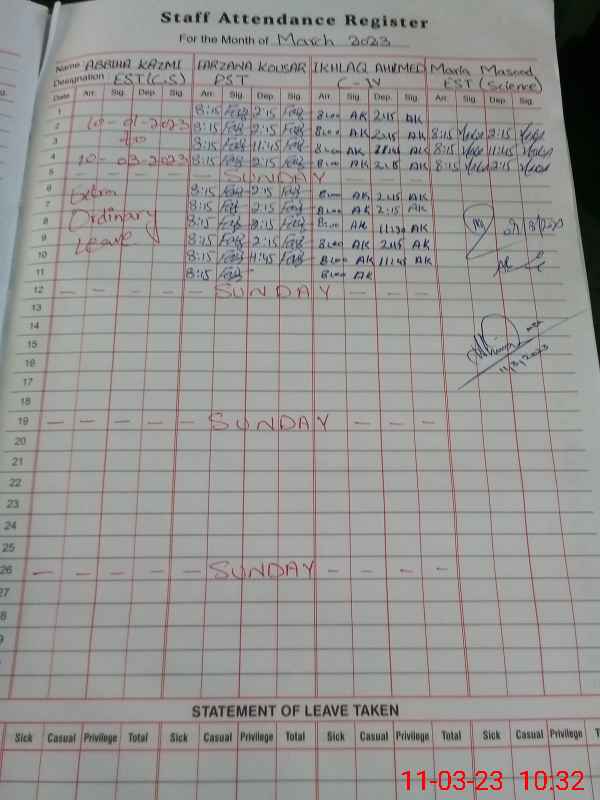 Staff Attendance Register
For the Month of March 2023
Name ABRIHA KAZMI FARZANA KOUSAR IKHLAQ AHMED Maria Masood
Designation EST(C.S) PST C-IV EST (Science)
Date Arr. Sig. Dep. Sig Arr. Sig. Dep. Sig. Arr Sig. Dep. Sig. Arr. Sig. Dep. Sig.
1 8:15 2:15 8:00 AK 2:15 AK
2 10-01-2023 8:15 2:15 8:00 AK 2:15 AK 8:15 2:15
3 to 8:15 11:45 8:00 AK AK 8:15 11:45
4 10-03-2023 8:15 2:15 8:00 AK 2:15 AK 8:15 2:15
5 - - - - - SUNDAY - - -
6 Extra 8:15 2:15 8:00 AK 2:15 AK
7 8:15 2:15 8:00 AK 2:15 AK
8 Ordinary 8:15 2:15 8:00 AK 11:30 AK
9 8:15 2:15 8:00 AK 2:15 AK
10 Leave 8:15 11:45 8:00 AK 11:45 AK
11 8:15 8:00 AK
12 - - - - - SUNDAY - - -
13
14
15
11/3/2023
16
17
18
19 - - - - - SUNDAY - - - -
20
21
22
23
24
25
26 - - - - - SUNDAY - - - -
27
28
STATEMENT OF LEAVE TAKEN
Sick Casual Privilege Total Sick Casual Privilege Total Sick Casual Privilege Total Sick Casual Privilege T
11-03-23 10:32